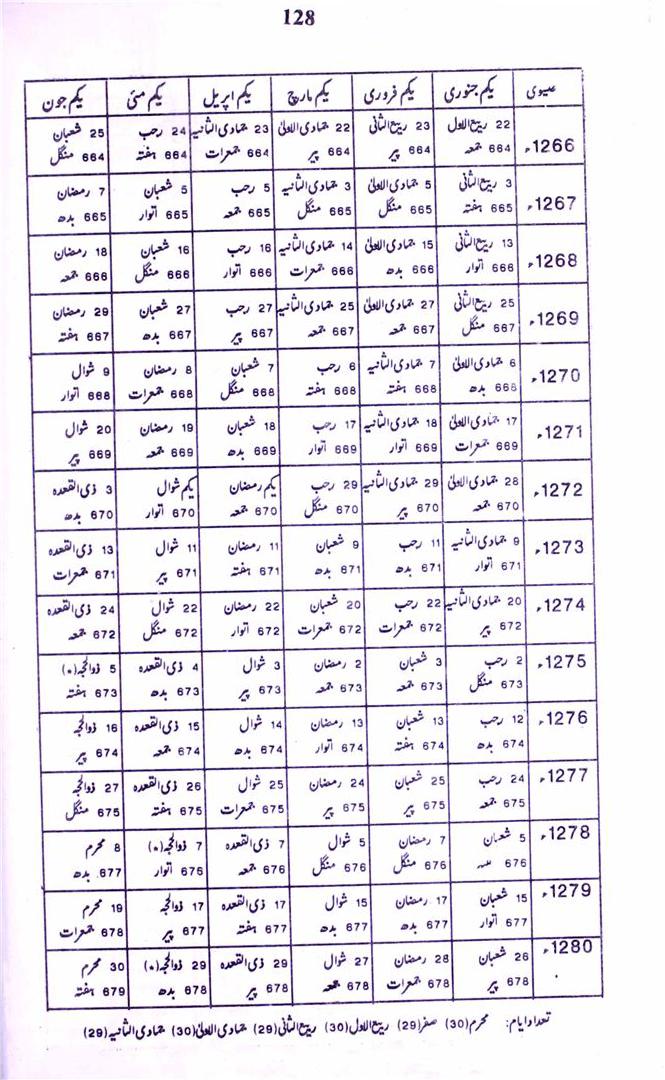 128
عیسوی یکم جنوری یکم فروری یکم مارچ یکم اپریل یکم مئی یکم جون
1266ء 22 ربیع الاول 23 ربیع الثانی 22 جمادی الاولیٰ 23 جمادی الثانیہ 24 رجب 25 شعبان
664 جمعہ 664 پیر 664 پیر 664 جمعرات 664 ہفتہ 664 منگل
1267ء 3 ربیع الثانی 5 جمادی الاولیٰ 3 جمادی الثانیہ 5 رجب 5 شعبان 7 رمضان
665 ہفتہ 665 منگل 665 منگل 665 جمعہ 665 اتوار 665 بدھ
1268ء 13 ربیع الثانی 15 جمادی الاولیٰ 14 جمادی الثانیہ 16 رجب 16 شعبان 18 رمضان
666 اتوار 666 بدھ 666 جمعرات 666 اتوار 666 منگل 666 جمعہ
1269ء 25 ربیع الثانی 27 جمادی الاولیٰ 25 جمادی الثانیہ 27 رجب 27 شعبان 29 رمضان
667 منگل 667 جمعہ 667 جمعہ 667 پیر 667 بدھ 667 ہفتہ
1270ء 6 جمادی الاولیٰ 7 جمادی الثانیہ 6 رجب 7 شعبان 8 رمضان 9 شوال
668 بدھ 668 ہفتہ 668 ہفتہ 668 منگل 668 جمعرات 668 اتوار
1271ء 17 جمادی الاولیٰ 18 جمادی الثانیہ 17 رجب 18 شعبان 19 رمضان 20 شوال
669 جمعرات 669 اتوار 669 اتوار 669 بدھ 669 جمعہ 669 پیر
1272ء 28 جمادی الاولیٰ 29 جمادی الثانیہ 29 رجب یکم رمضان یکم شوال 3 ذی القعدہ
670 جمعہ 670 پیر 670 منگل 670 جمعہ 670 اتوار 670 بدھ
1273ء 9 جمادی الثانیہ 11 رجب 9 شعبان 11 رمضان 11 شوال 13 ذی القعدہ
671 اتوار 671 بدھ 671 بدھ 671 ہفتہ 671 پیر 671 جمعرات
1274ء 20 جمادی الثانیہ 22 رجب 20 شعبان 22 رمضان 22 شوال 24 ذی القعدہ
672 پیر 672 جمعرات 672 جمعرات 672 اتوار 672 منگل 672 جمعہ
1275ء 2 رجب 3 شعبان 2 رمضان 3 شوال 4 ذی القعدہ 5 ذوالحجہ (*)
673 منگل 673 جمعہ 673 جمعہ 673 پیر 673 بدھ 673 ہفتہ
1276ء 12 رجب 13 شعبان 13 رمضان 14 شوال 15 ذی القعدہ 16 ذوالحجہ
674 بدھ 674 ہفتہ 674 اتوار 674 بدھ 674 جمعہ 674 پیر
1277ء 24 رجب 25 شعبان 24 رمضان 25 شوال 26 ذی القعدہ 27 ذوالحجہ
675 جمعہ 675 پیر 675 پیر 675 جمعرات 675 ہفتہ 675 منگل
1278ء 5 شعبان 7 رمضان 5 شوال 7 ذی القعدہ 7 ذوالحجہ (*) 8 محرم
676 676 منگل 676 منگل 676 جمعہ 676 اتوار 677 بدھ
1279ء 15 شعبان 17 رمضان 15 شوال 17 ذی القعدہ 17 ذوالحجہ 19 محرم
677 اتوار 677 بدھ 677 بدھ 677 ہفتہ 677 پیر 678 جمعرات
1280ء 26 شعبان 28 رمضان 27 شوال 29 ذی القعدہ 29 ذوالحجہ (*) 30 محرم
678 پیر 678 جمعرات 678 جمعہ 678 پیر 678 بدھ 679 ہفتہ
تعداد ایام: محرم (30) صفر (29) ربیع الاول (30) ربیع الثانی (29) جمادی الاولیٰ (30) جمادی الثانیہ (29)